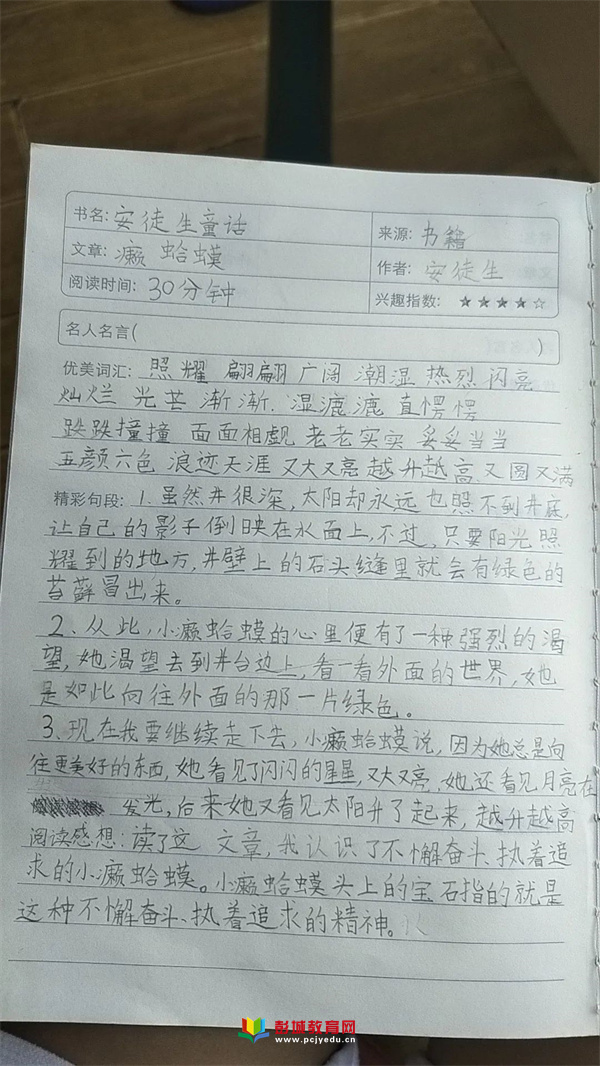 书名: 安徒生童话
来源: 书籍
文章: 癞蛤蟆
作者: 安徒生
阅读时间: 30分钟
兴趣指数: ★★★★☆
名人名言( )
优美词汇: 照耀 翩翩 广阔 潮湿 热烈 闪亮
灿烂 光芒 渐渐 湿漉漉 直愣愣
跌跌撞撞 面面相觑 老老实实 妥妥当当
五颜六色 浪迹天涯 又大又亮 越升越高 又圆又满
精彩句段: 1.虽然井很深,太阳却永远也照不到井底,
让自己的影子倒映在水面上,不过,只要阳光照
耀到的地方,井壁上的石头缝里就会有绿色的
苔藓冒出来。
2、从此,小癞蛤蟆的心里便有了一种强烈的渴
望,她渴望去到井台边上,看一看外面的世界,她
是如此向往外面的那一片绿色。
3、现在我要继续走下去,小癞蛤蟆说,因为她总是向
往更美好的东西,她看见了闪闪的星星又大又亮,她还看见月亮在
发光,后来她又看见太阳升了起来,越升越高
阅读感想:读了这 文章,我认识了不懈奋斗、执着追
求的小癞蛤蟆。小癞蛤蟆头上的宝石指的就是
这种不懈奋斗、执着追求的精神。
彭城教育网
www.pcjyedu.cn